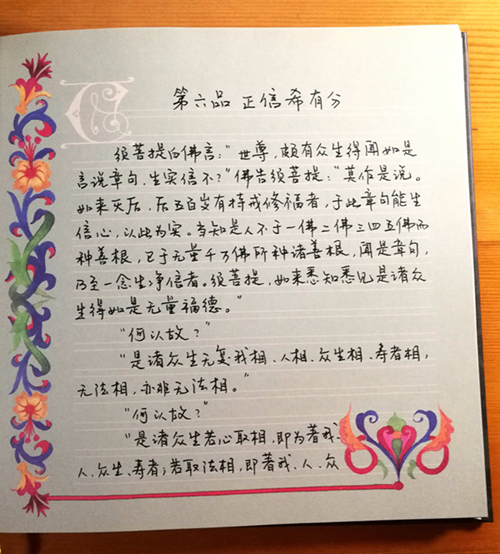 第六品 正信希有分
须菩提白佛言："世尊，颇有众生得闻如是
言说章句，生实信不？"佛告须菩提："莫作是说。
如来灭后，后五百岁有持戒修福者，于此章句能生
信心，以此为实。当知是人不于一佛二佛三四五佛而
种善根，已于无量千万佛所种诸善根，闻是章句，
乃至一念生净信者。须菩提，如来悉知悉见是诸众
生得如是无量福德。"
"何以故？"
"是诸众生无复我相、人相、众生相、寿者相，
无法相，亦非无法相。"
"何以故？"
"是诸众生若心取相，即为著我、
人、众生、寿者；若取法相，即著我、人、众